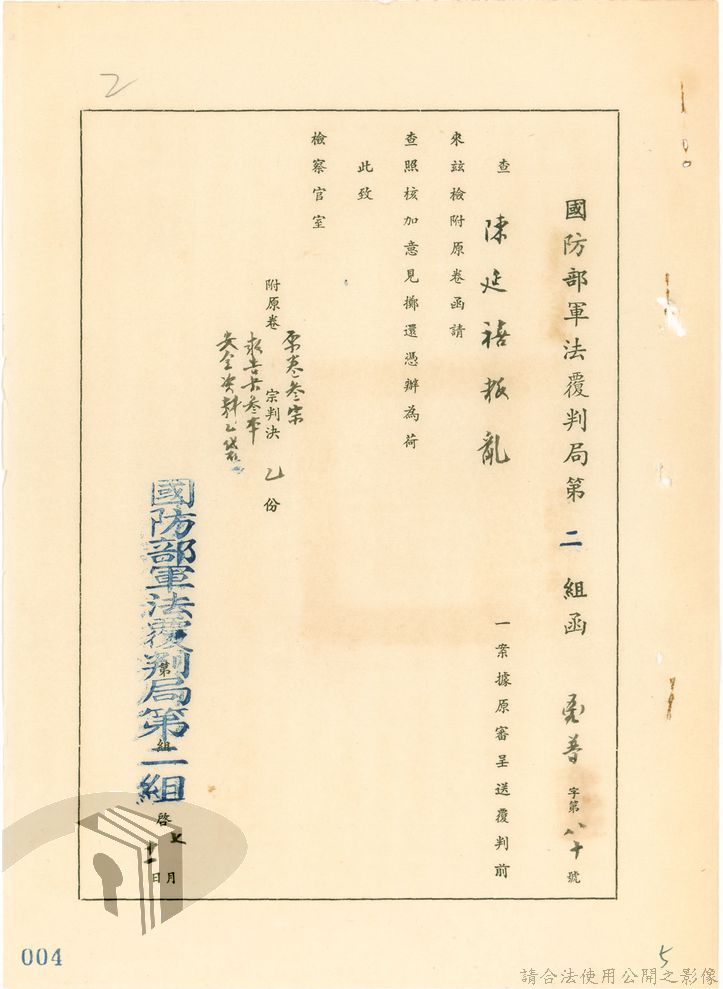 2
國防部軍法覆判局第二組函
普字第八十號
查陳延禧叛亂一案據原審呈送覆判前
來茲檢附原卷函請
查照核加意見擲還憑辦為荷
此致
檢察官室
附原卷 宗判決乙份
原卷叁宗
安全資料乙袋
國防部軍法覆判局第二組
第 組 啓
七月十一日
004
5
請合法使用公開之影像